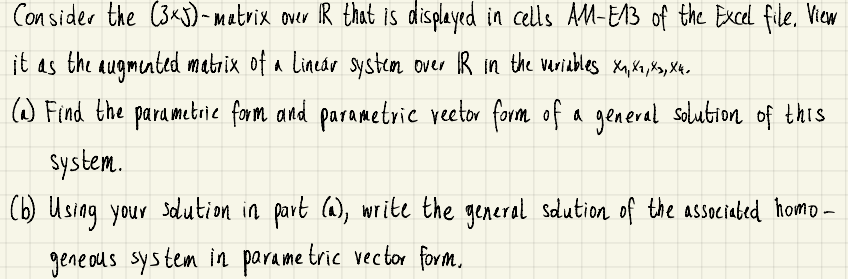 Consider the (3×5)-matrix over ℝ that is displayed in cells A11-E13 of the Excel file. View
it as the augmented matrix of a linear system over ℝ in the variables x₁,x₂,x₃,x₄.
(a) Find the parametric form and parametric vector form of a general solution of this
system.
(b) Using your solution in part (a), write the general solution of the associated homo-
geneous system in parametric vector form.